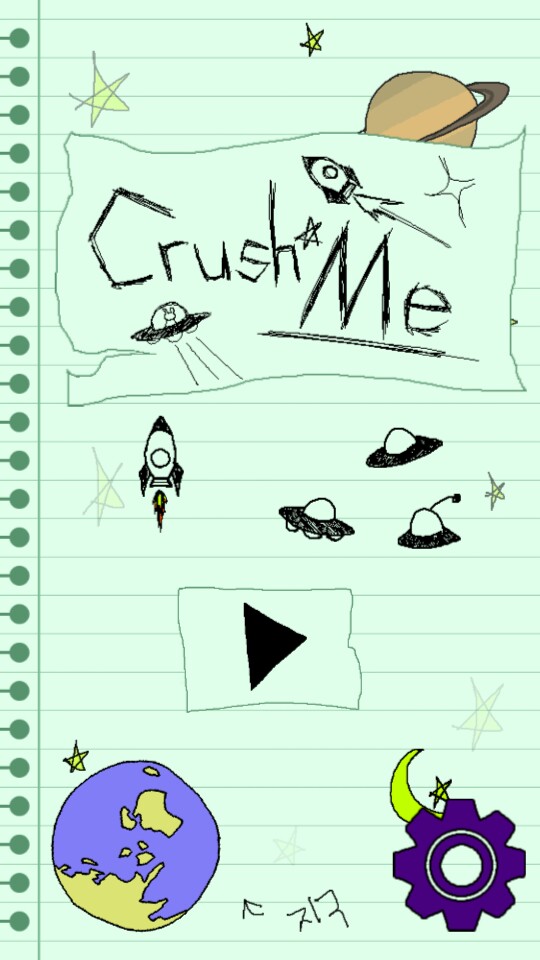 Crush Me
지구